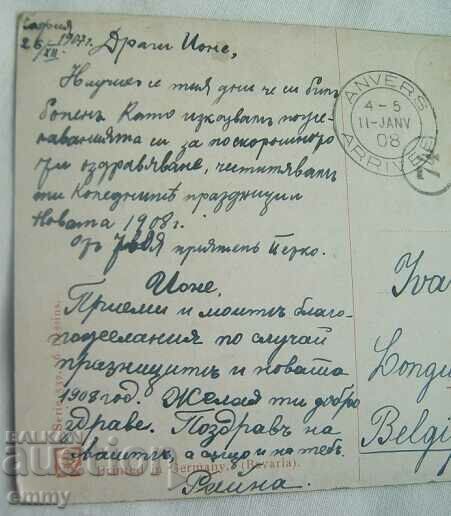 София
26/XII 1907 г.
Драги Ионе,
Научих се тия дни че си билъ
боленъ. Като изказвамъ поже-
лаванията си за поскорошното
ти оздравяване, честитявамъ
ти Коледнитѣ праздници и
Новата 1908 г.
отъ твоя приятель
Ионе,
Приеми и моитѣ благо-
пожелания по случай
празницитѣ и новата
1908 год. Желая ти добро
здраве. Поздравъ на
вашитѣ, а също и на тебъ.
Райна.
ANVERS
4-5
11-JANV
08
ARRIVÉE
74
Iva
Longu
Belgi
Serie
Printed in Germany. (Bavaria).
BALKAN
auction
emmy